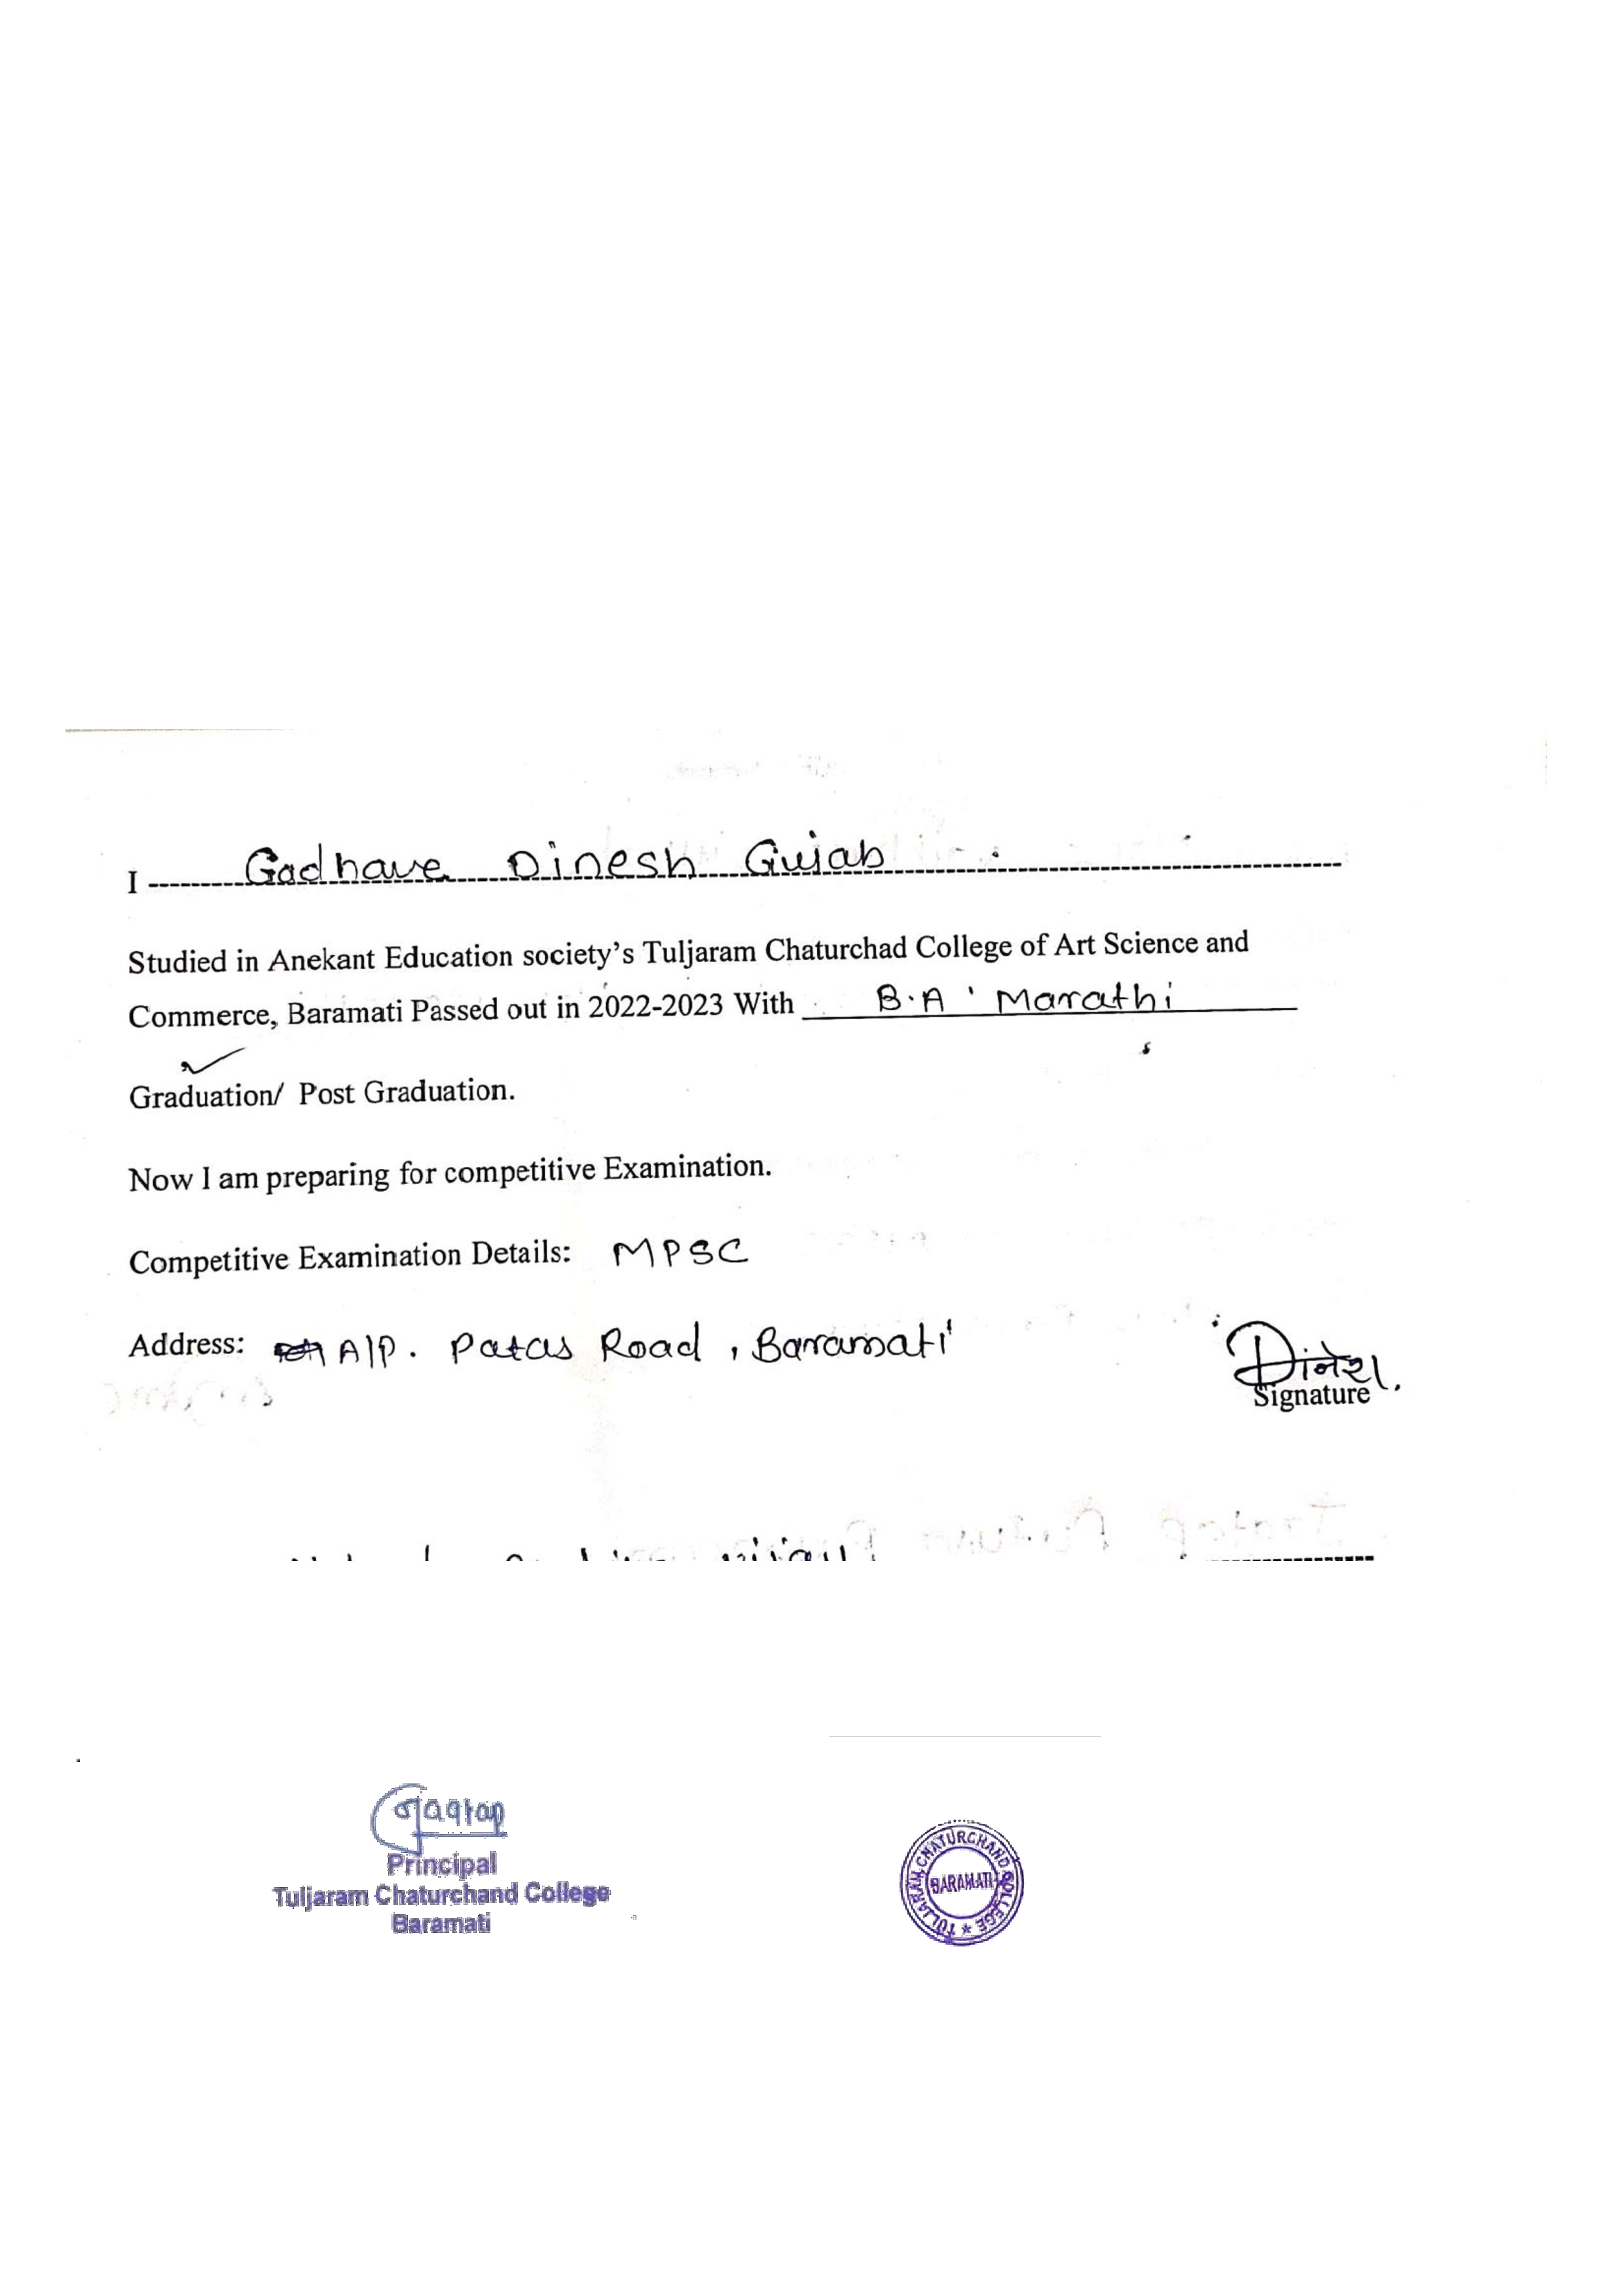 I Gadhave Dinesh Gujab
Studied in Anekant Education society's Tuljaram Chaturchad College of Art Science and
Commerce, Baramati Passed out in 2022-2023 With B.A ' Marathi
Graduation/ Post Graduation.
Now I am preparing for competitive Examination.
Competitive Examination Details: MPSC
Address: A/P. Patas Road , Baramati
दिनेश.
Signature
Principal
Tuljaram Chaturchand College
Baramati
TULJARAM CHATURCHAND COLLEGE ★
BARAMATI